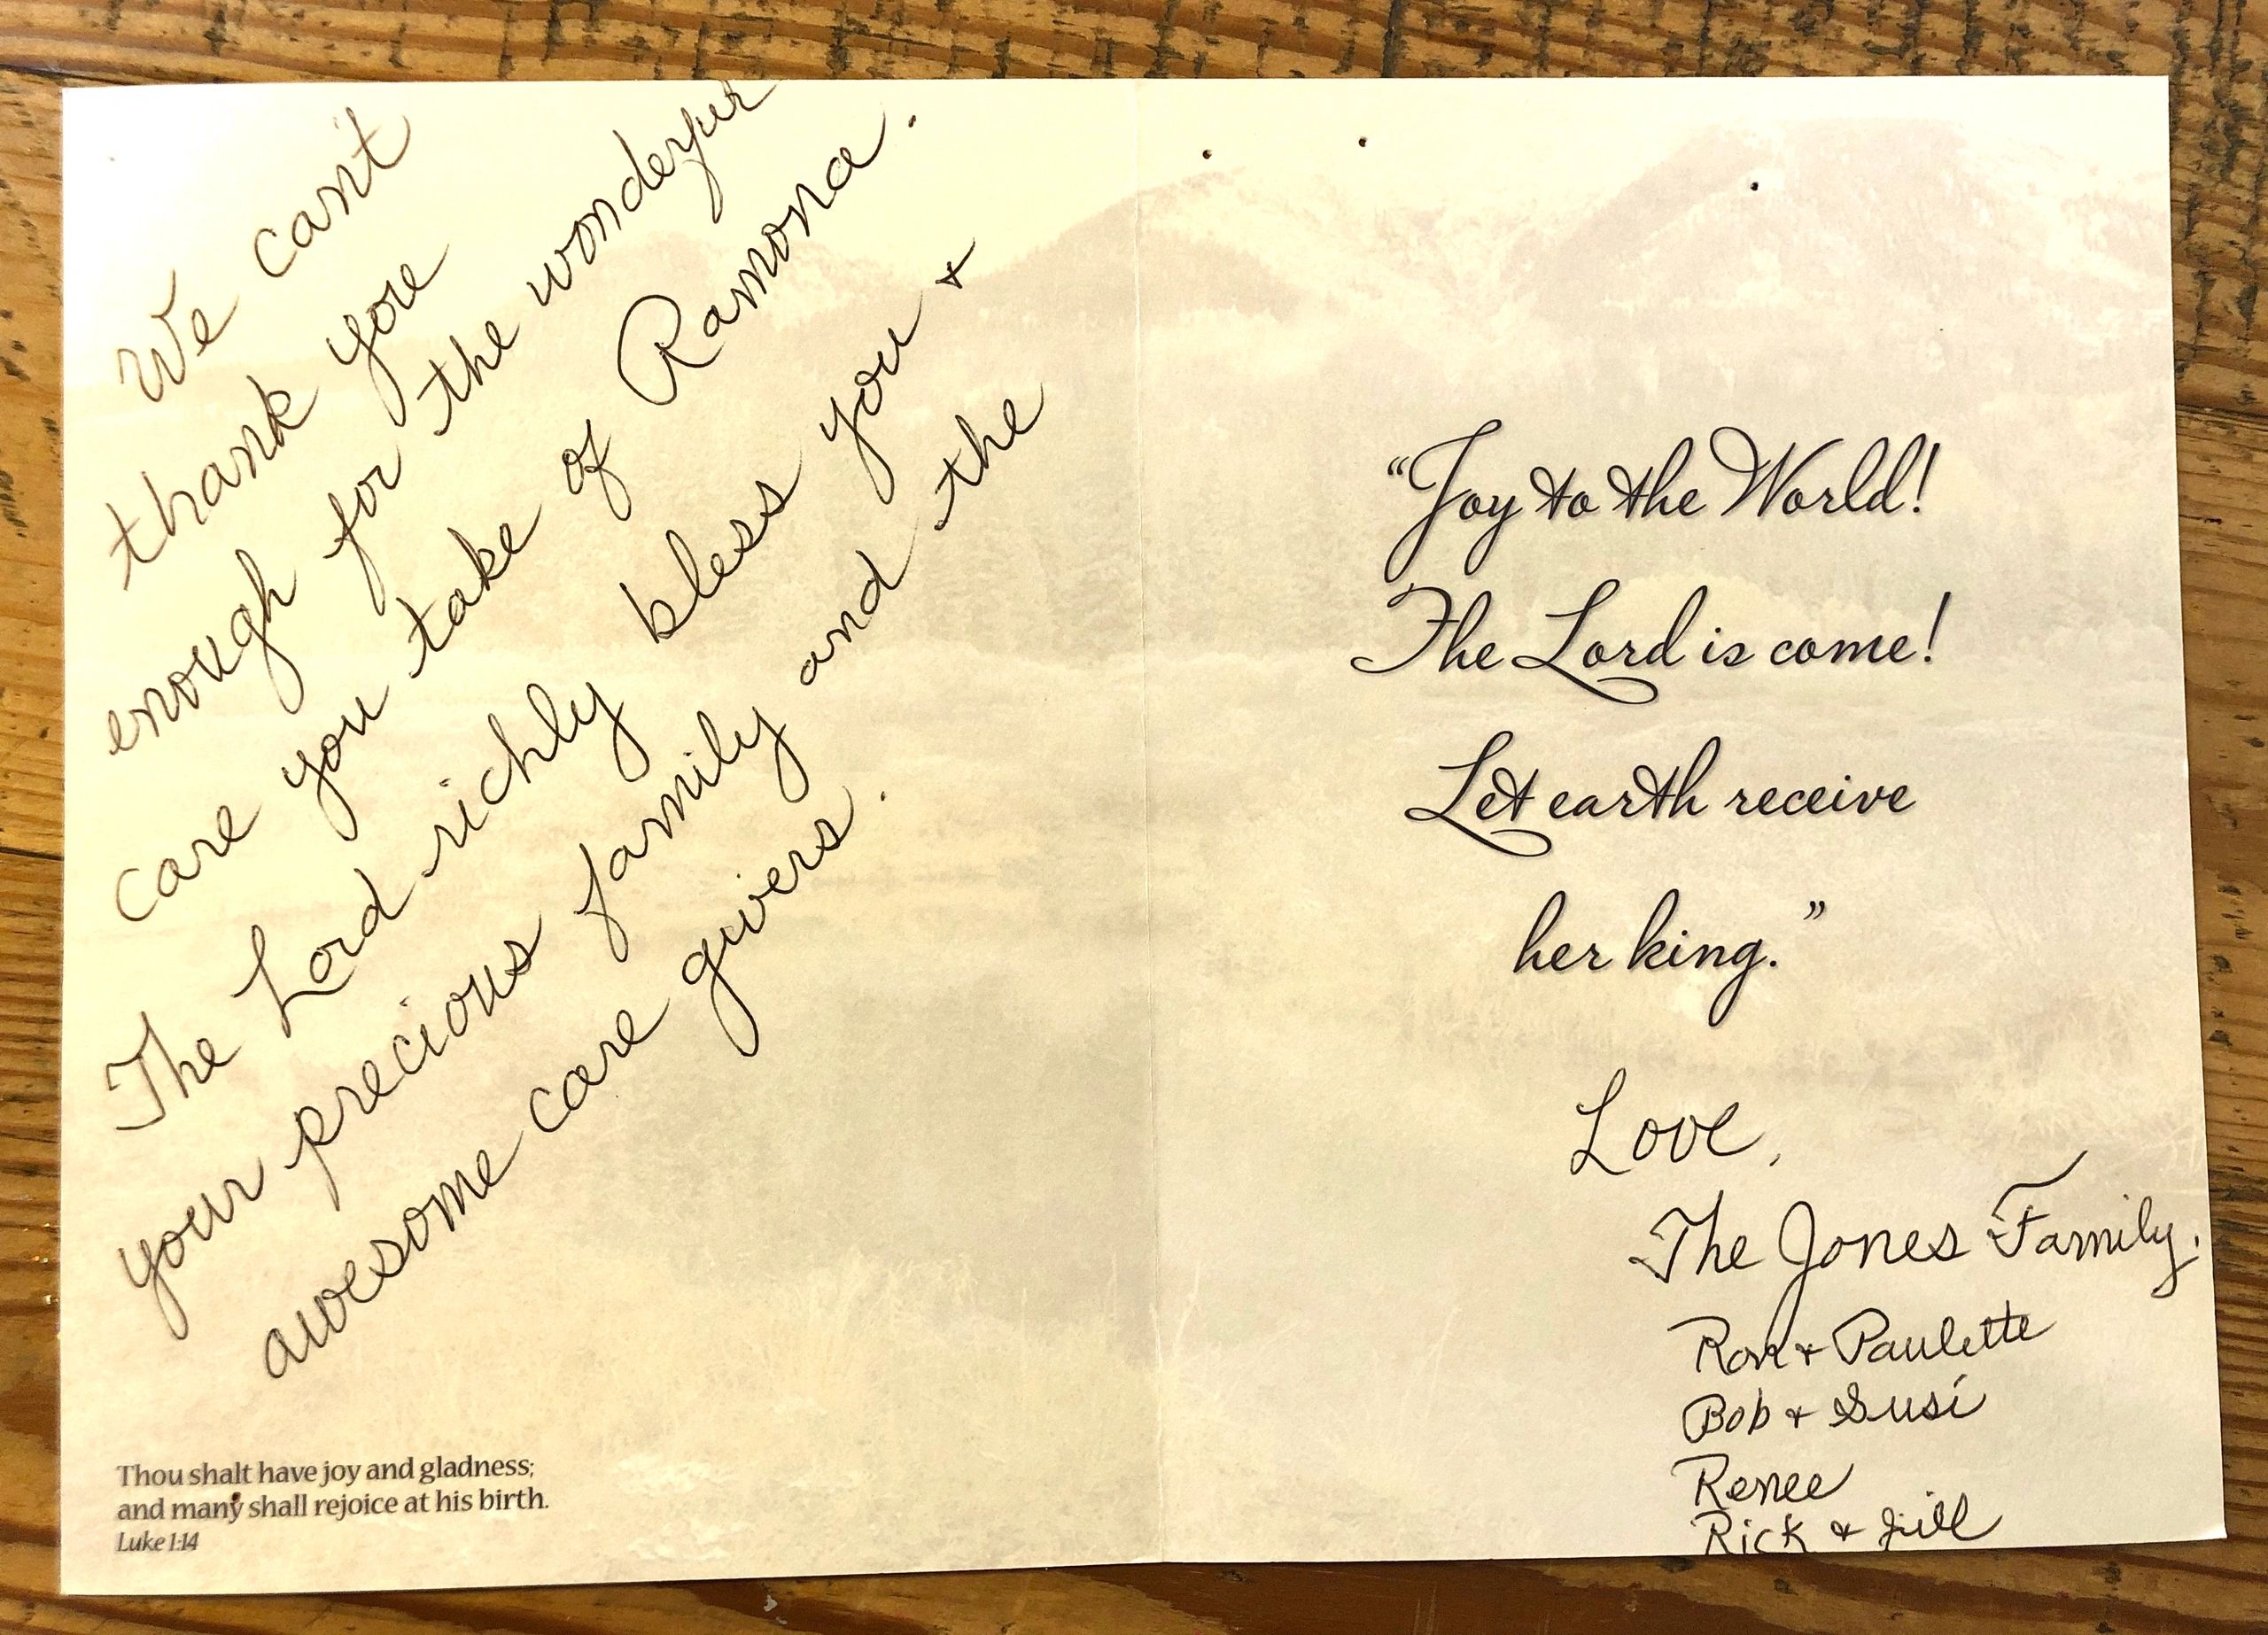 We can't
thank you
enough for the wonderful
care you take of Ramona.
The Lord richly bless you +
your precious family and the
awesome care givers.
Thou shalt have joy and gladness;
and many shall rejoice at his birth.
Luke 1:14
“Joy to the World!
The Lord is come!
Let earth receive
her king.”
Love,
The Jones Family.
Ron + Paulette
Bob + Susi
Renee
Rick & Jill